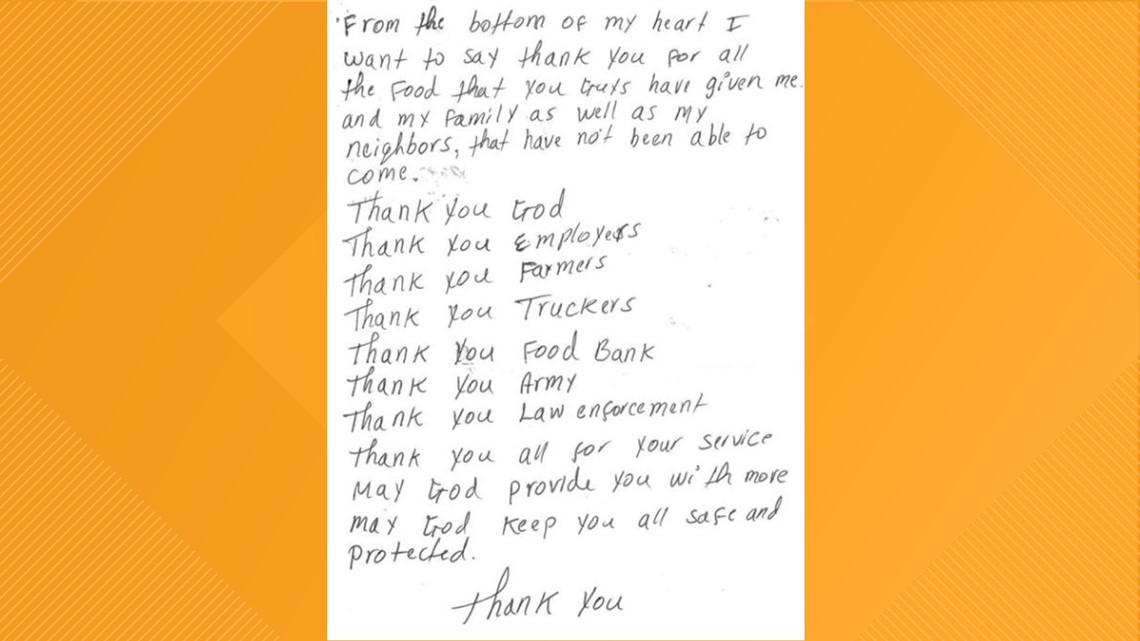 From the bottom of my heart I
want to say thank you for all
the food that you Guys have given me.
and my family as well as my
neighbors, that have not been able to
come.
Thank you God
Thank you Employers
Thank you Farmers
Thank you Truckers
Thank you Food Bank
Thank you Army
Thank you Law enforcement
Thank you all for your service
May God provide you with more
may God keep you all safe and
protected.
Thank you